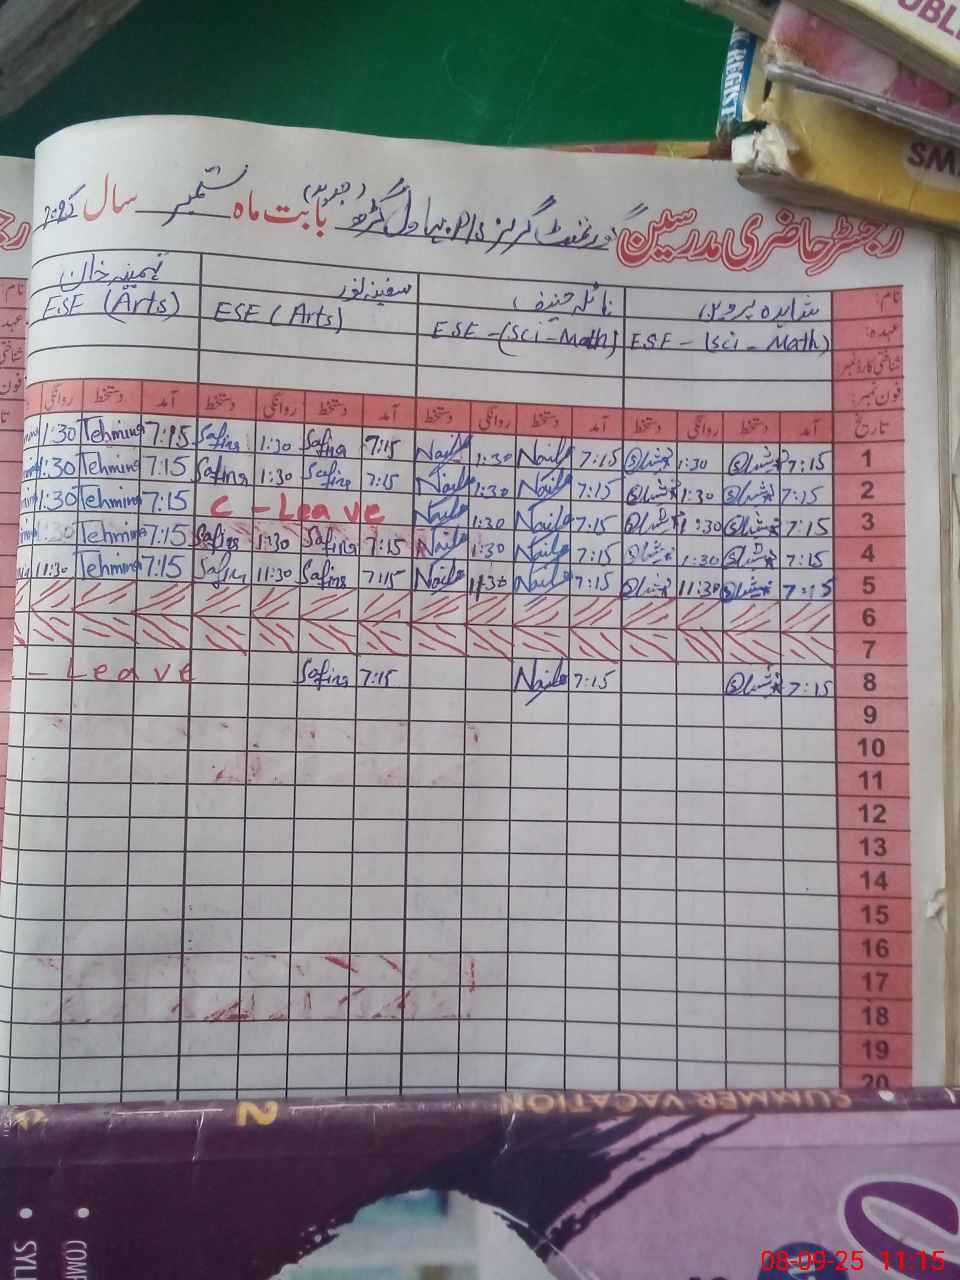 رجسٹر حاضری مدرسین گورنمنٹ گرلز P/S بہاول گڑھ (جدید) بابت ماہ ستمبر سال 2025
نام: شاہدہ پروین نائلہ حنیف سفینہ نور تہمینہ خان
عہدہ: ESE - (Sci - Math) ESE - (Sci - Math) ESE (Arts) ESE (Arts)
شناختی کارڈ نمبر
فون نمبر:
تاریخ آمد دستخط روانگی دستخط آمد دستخط روانگی دستخط آمد دستخط روانگی دستخط آمد دستخط روانگی
1 7:15 1:30 7:15 Naila 1:30 Naila 7:15 Safina 1:30 Safina 7:15 Tehmina 1:30
2 7:15 1:30 7:15 Naila 1:30 Naila 7:15 Safina 1:30 Safina 7:15 Tehmina 1:30
3 7:15 1:30 7:15 Naila 1:30 Naila C - Leave 7:15 Tehmina 1:30
4 7:15 1:30 7:15 Naila 1:30 Naila 7:15 Safina 1:30 Safina 7:15 Tehmina 1:30
5 7:15 11:30 7:15 Naila 11:30 Naila 7:15 Safina 11:30 Safina 7:15 Tehmina 11:30
6
7
8 7:15 7:15 Naila 7:15 Safina - Leave
9
10
11
12
13
14
15
16
17
18
19
20
REGIST
SUMMER VACATION
2
08-09-25 11:15